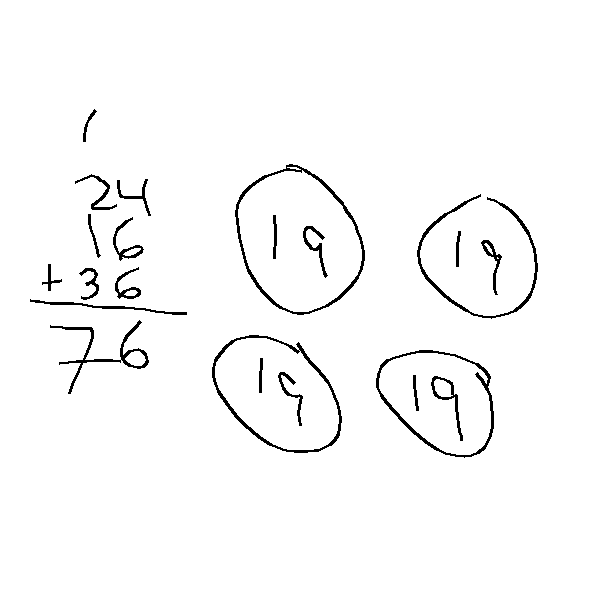 1
24
16
+ 36
76
19
19
19
19